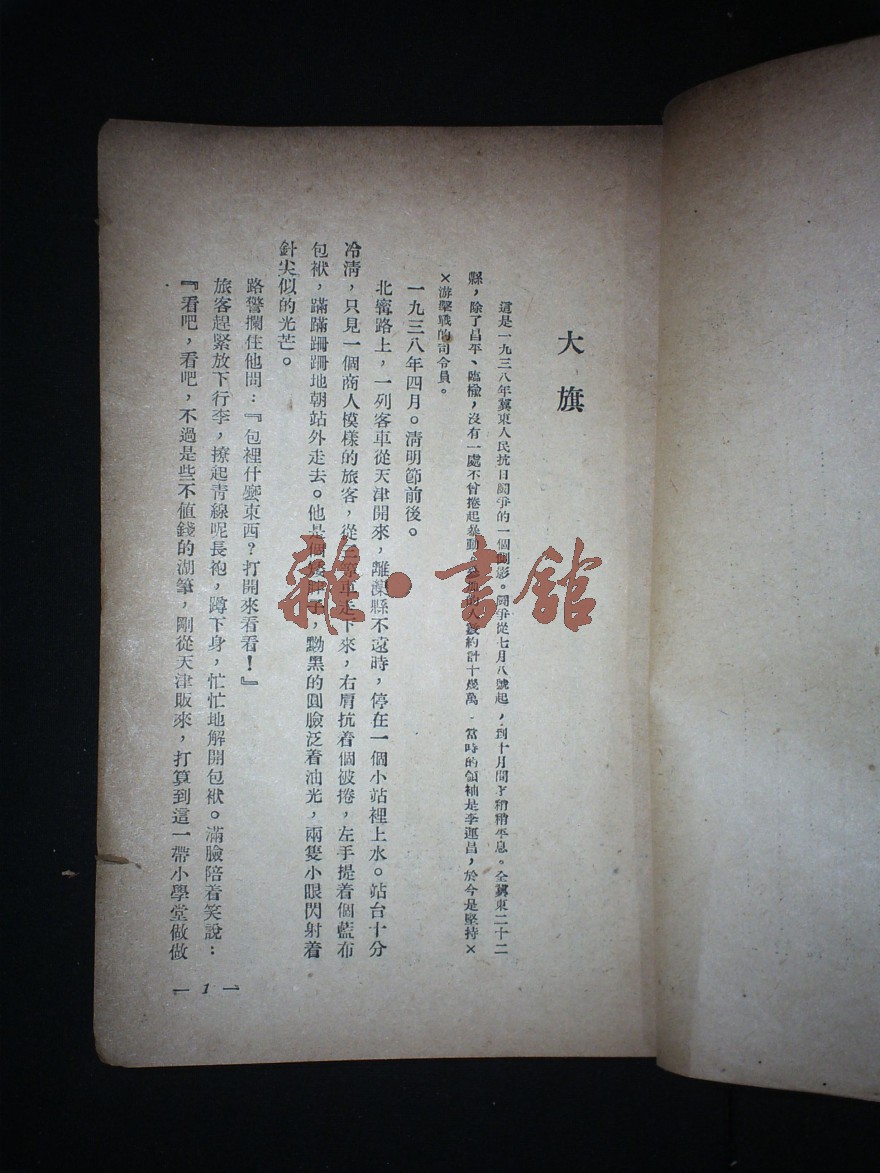 大旗
這是一九三八年冀東人民抗日鬪爭的一個側影。鬪爭從七月八號起，到十月間才稍稍平息。全冀東二十二
縣，除了昌平、臨楡，沒有一處不曾捲起暴動，的人數約計十幾萬．當時的領袖是李運昌，於今是堅持×
×游擊戰的司令員。
一九三八年四月。清明節前後。
北寧路上，一列客車從天津開來，離灤縣不遠時，停在一個小站裡上水。站台十分
冷清，只見一個商人模樣的旅客，從三等車走下來，右肩抗着個被捲，左手提着個藍布
包袱，蹣蹣跚跚地朝站外走去。他是個矮胖子，黝黑的圓臉泛着油光，兩隻小眼閃射着
針尖似的光芒。
路警攔住他問：『包裡什麼東西？打開來看看！』
旅客趕緊放下行李，撩起青線呢長袍，蹲下身，忙忙地解開包袱。滿臉陪着笑說：
『看吧，看吧，不過是些不值錢的湖筆，剛從天津販來，打算到這一帶小學堂做做
— 1 —
雜·書館